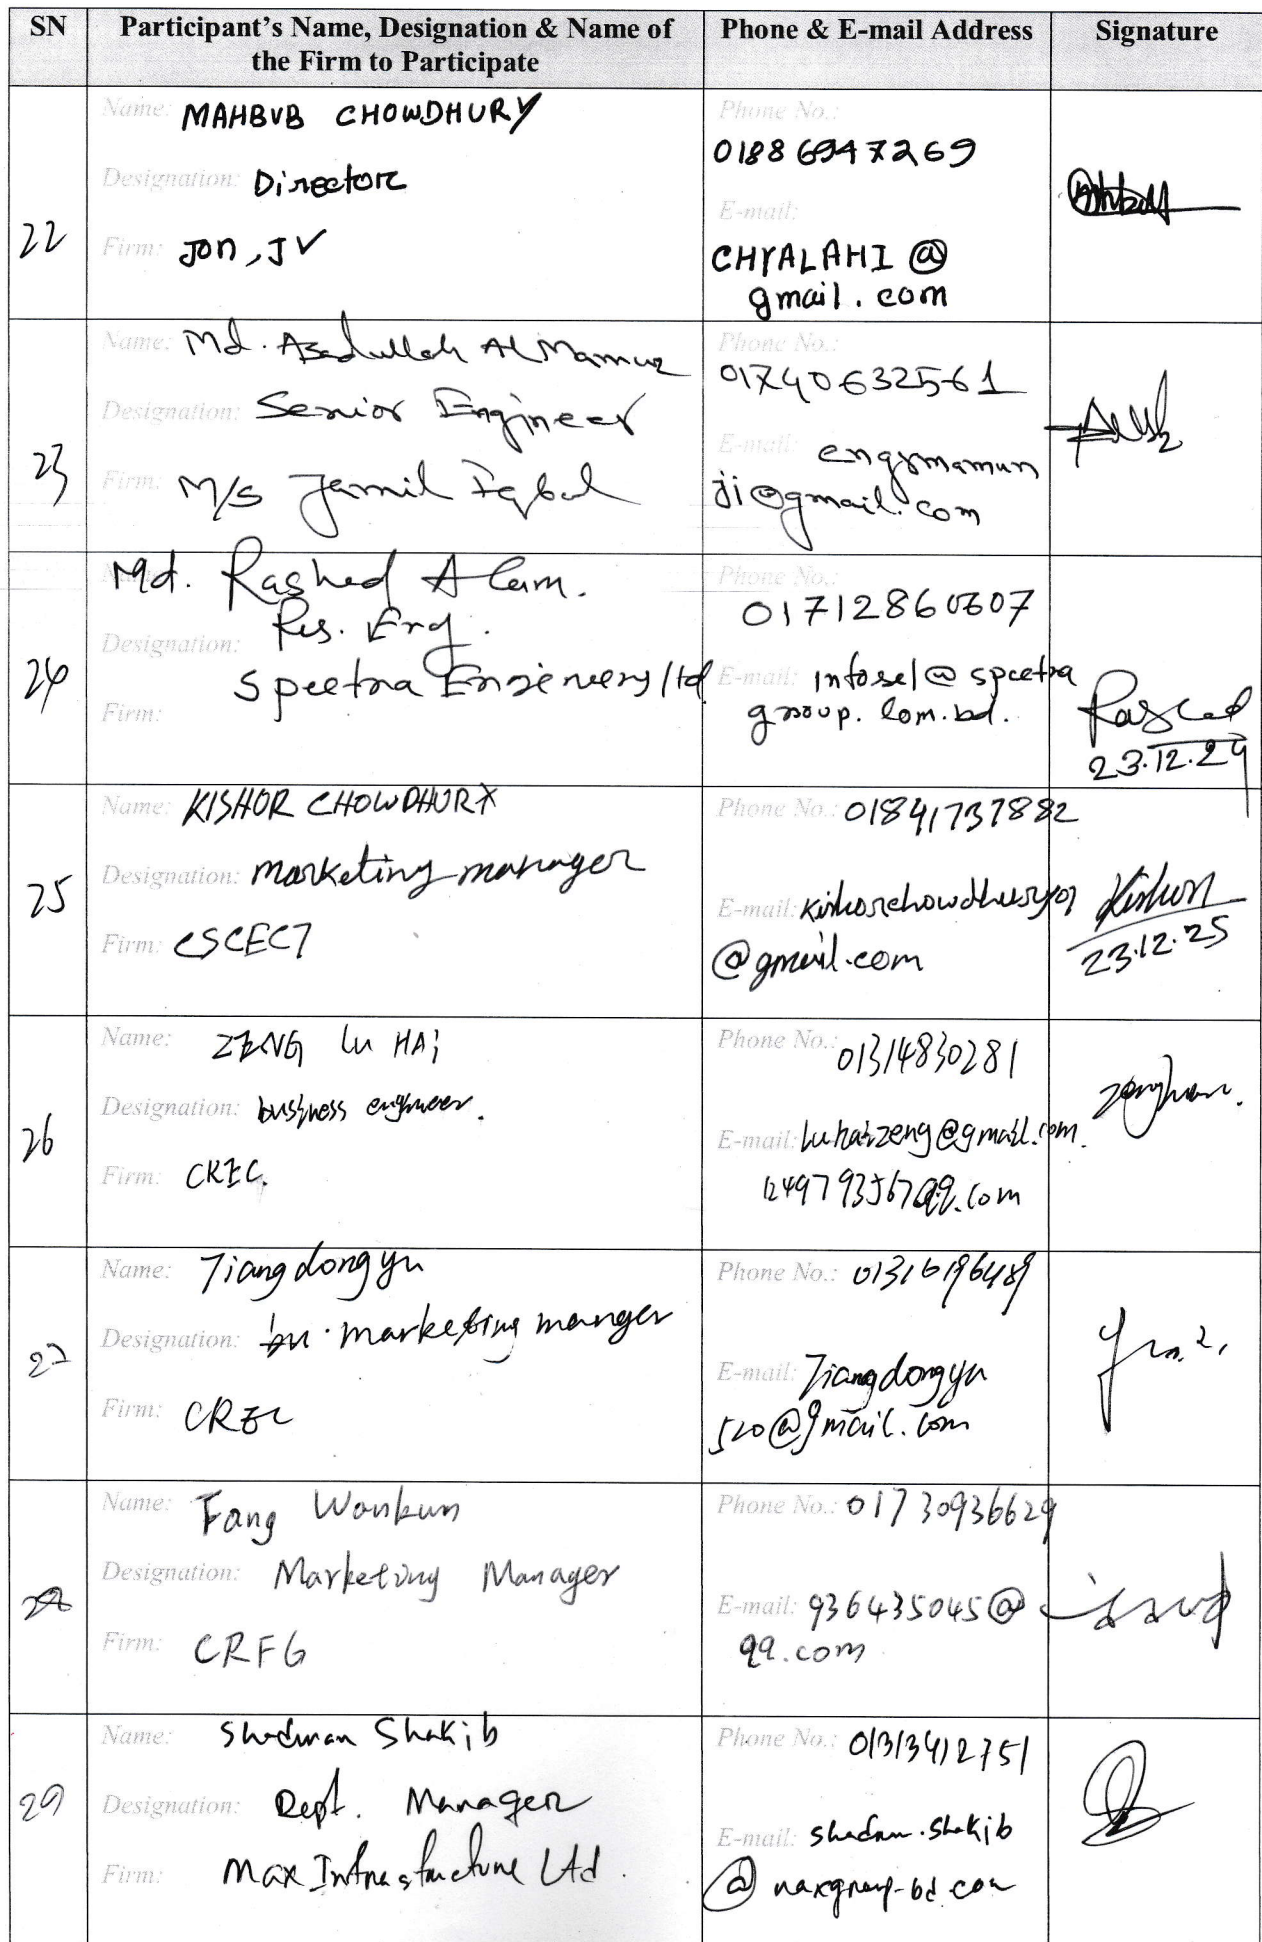 SN
Participant's Name, Designation & Name of
the Firm to Participate
Phone & E-mail Address
Signature
22
Name: MAHBUB CHOWDHURY
Designation: Director
Firm: JON, JV
Phone No.:
01886947269
E-mail:
CHYALAHI @
gmail.com
23
Name: Md. Asadullah Al Mamun
Designation: Senior Engineer
Firm: M/S Jamil Iqbal
Phone No.:
01740632561
E-mail: engrmamun
ji@gmail.com
24
Name: Md. Rashed Alam.
Designation: Res. Eng.
Spectra Engineers ltd
Firm:
Phone No.:
01712860607
E-mail: infosel@spectra
group.com.bd.
Rashed
23.12.24
25
Name: KISHOR CHOWDHURY
Designation: Marketing manager
Firm: CSCEC7
Phone No.: 01841737882
E-mail: kishorchowdhury01
@gmail.com
Kishor
23.12.25
26
Name: ZENG Lu HAi
Designation: business engineer.
Firm: CREC.
Phone No.: 01314830281
E-mail: luhaizeng@gmail.com.
1249793567@qq.com
27
Name: Jiangdongyu
Designation: marketing manger
Firm: CREC
Phone No.: 01316196489
E-mail: Jiangdongyu
520@gmail.com
28
Name: Fang Wenkun
Designation: Marketing Manager
Firm: CRFG
Phone No.: 01730936629
E-mail: 936435045@
qq.com
29
Name: Shadman Shakib
Designation: Dept. Manager
Firm: Max Infrastructure Ltd.
Phone No.: 01313412751
E-mail: shadman.shakib
@maxgroup-bd.com